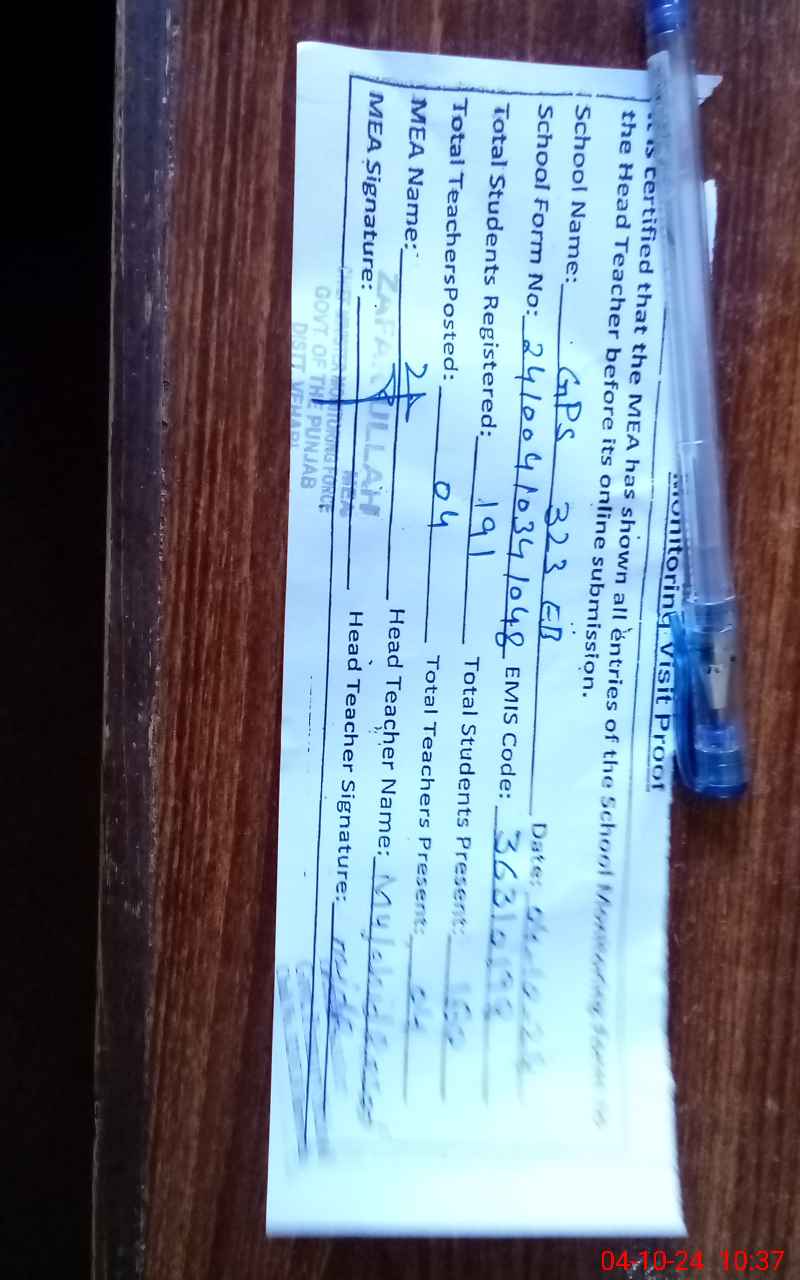 Monitoring Visit Proof
It is certified that the MEA has shown all entries of the School Monitoring
the Head Teacher before its online submission.
School Name: GPS 323 EB Date:
School Form No: 24100410341048 EMIS Code: 363101
Total Students Registered: 191 Total Students Present:
Total TeachersPosted: 04 Total Teachers Present: 04
MEA Name: Head Teacher Name:
MEA Signature: Head Teacher Signature:
ULLAH
MEA
MONITORING FORCE
GOVT. OF THE PUNJAB
DISTT. VEHARI
04-10-24 10:37